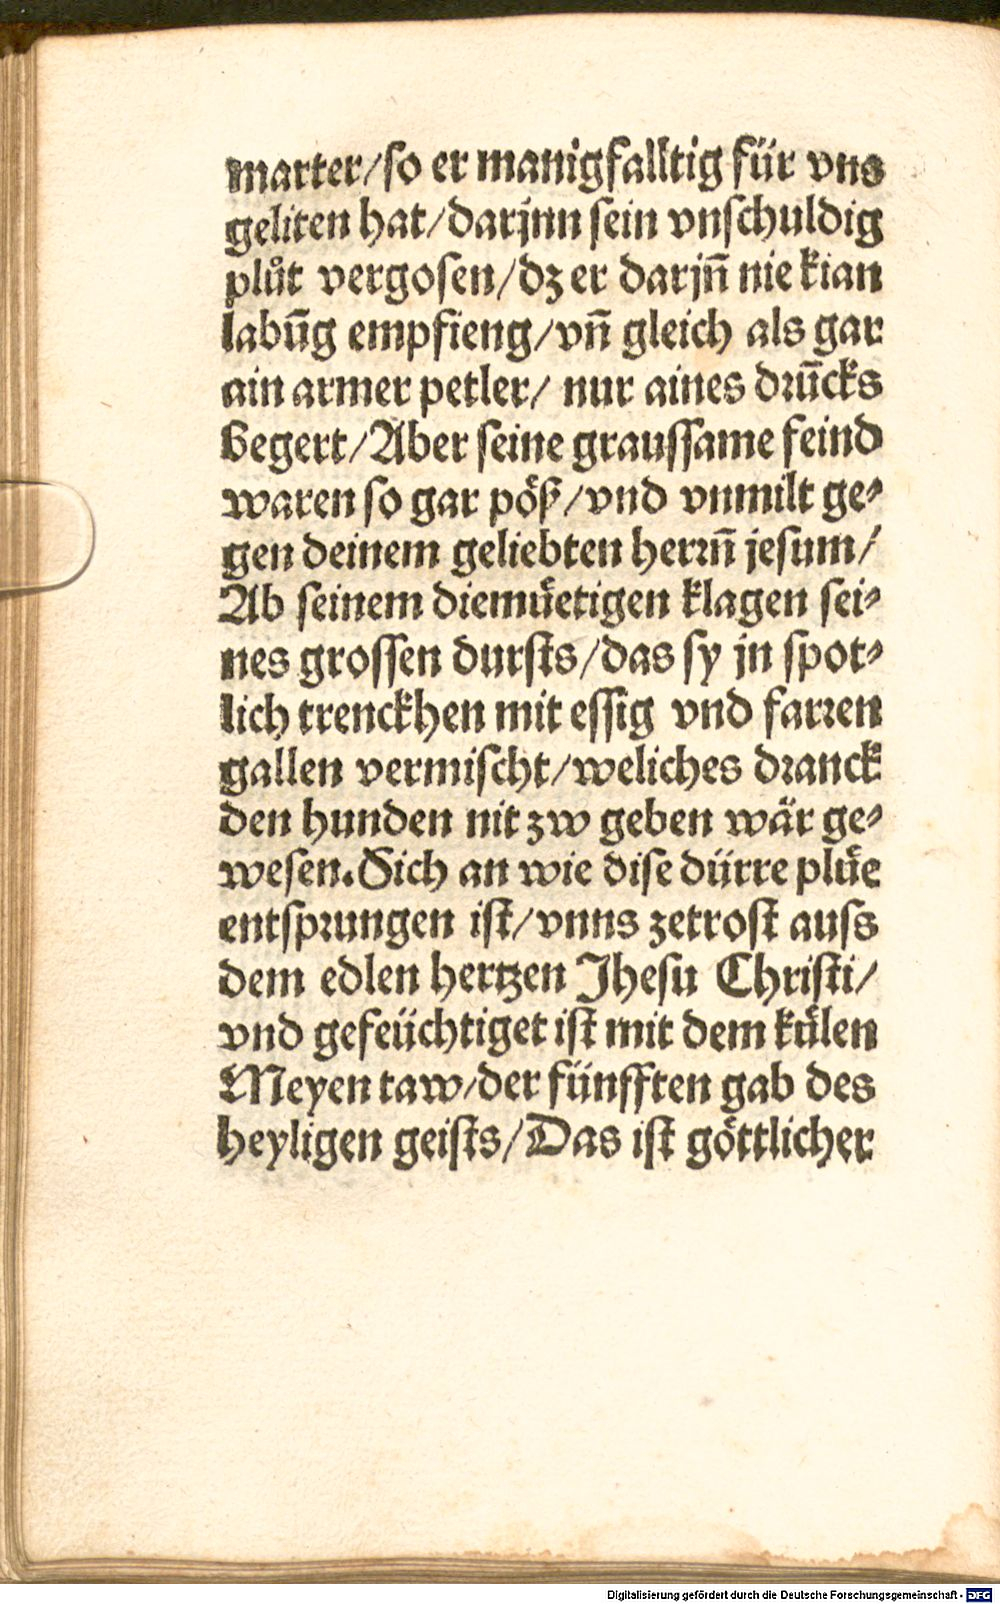 marter/so er manigfalltig für vns
geliten hat/darjnn sein vnschuldig
plůt vergosen/dz er darjn̄ nie kian
labūg empfieng/vn̄ gleich als gar
ain armer petler/ nur aines drūcks
Begert/Aber seine graussame feind
waren so gar pöß/vnd vnmilt ge⸗
gen deinem geliebten herrn̄ jesum/
Ab seinem diemuͤetigen klagen sei⸗
nes grossen dursts/das sy jn spot⸗
lich trenckhen mit essig vnd farren
gallen vermischt/weliches dranck
den hunden nit zw geben wär ge⸗
wesen. Sich an wie dise dürre pluͤe
entsprungen ist/vnns zetrost auss
dem edlen hertzen Jhesu Christi/
vnd gefeüchtiget ist mit dem kuͤlen
Meyen taw/der fünfften gab des
heyligen geists/Das ist göttlicher
Digitalisierung gefördert durch die Deutsche Forschungsgemeinschaft - DFG